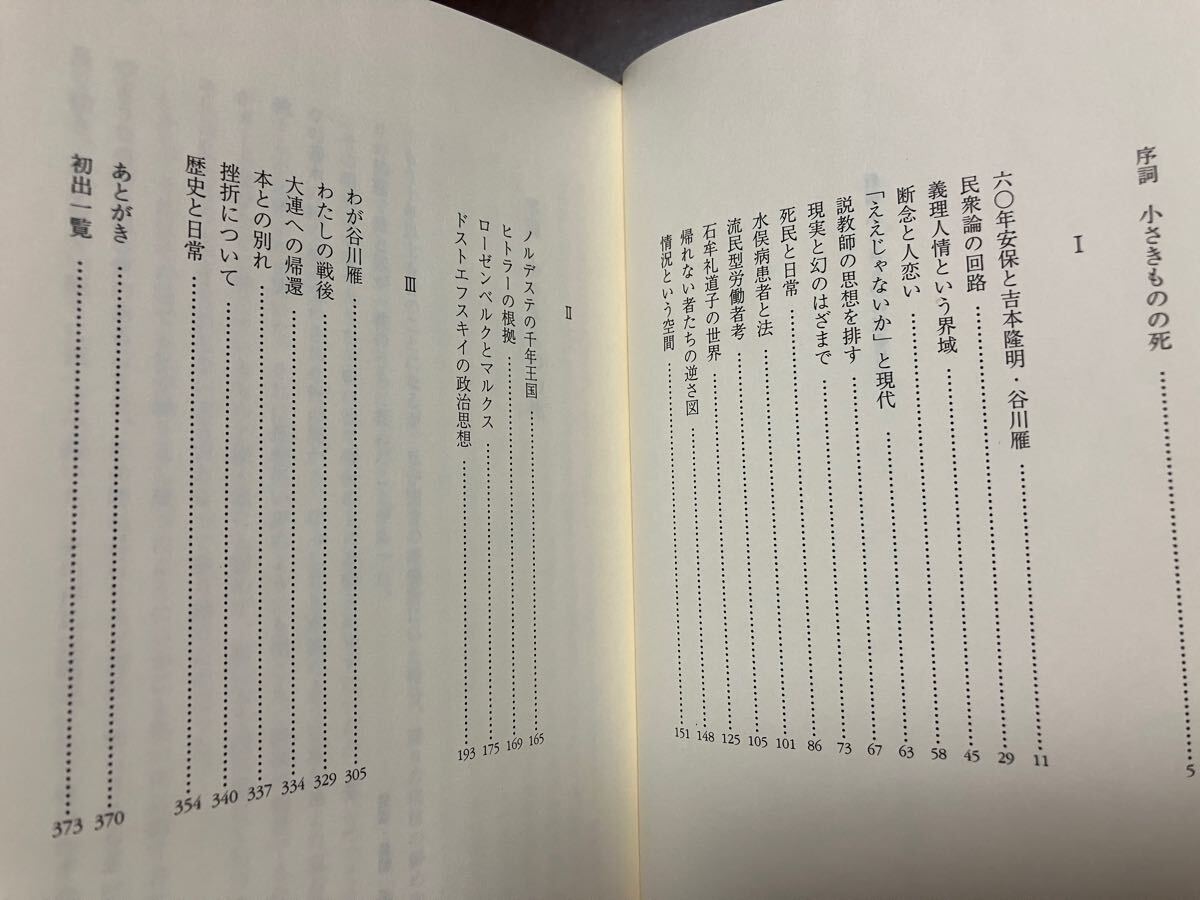 序詞　小さきものの死……………5
Ⅰ
六〇年安保と吉本隆明・谷川雁……………11
民衆論の回路……………29
義理人情という界域……………45
断念と人恋い……………58
「ええじゃないか」と現代……………63
説教師の思想を排す……………67
現実と幻のはざまで……………73
死民と日常……………86
水俣病患者と法……………101
流民型労働者考……………105
石牟礼道子の世界……………125
帰れない者たちの逆さ図……………148
情況という空間……………151
Ⅱ
ノルデステの千年王国……………165
ヒトラーの根拠……………169
ローゼンベルクとマルクス……………175
ドストエフスキイの政治思想……………193
Ⅲ
わが谷川雁……………305
わたしの戦後……………329
大連への帰還……………334
本との別れ……………337
挫折について……………340
歴史と日常……………354
あとがき……………370
初出一覧……………373